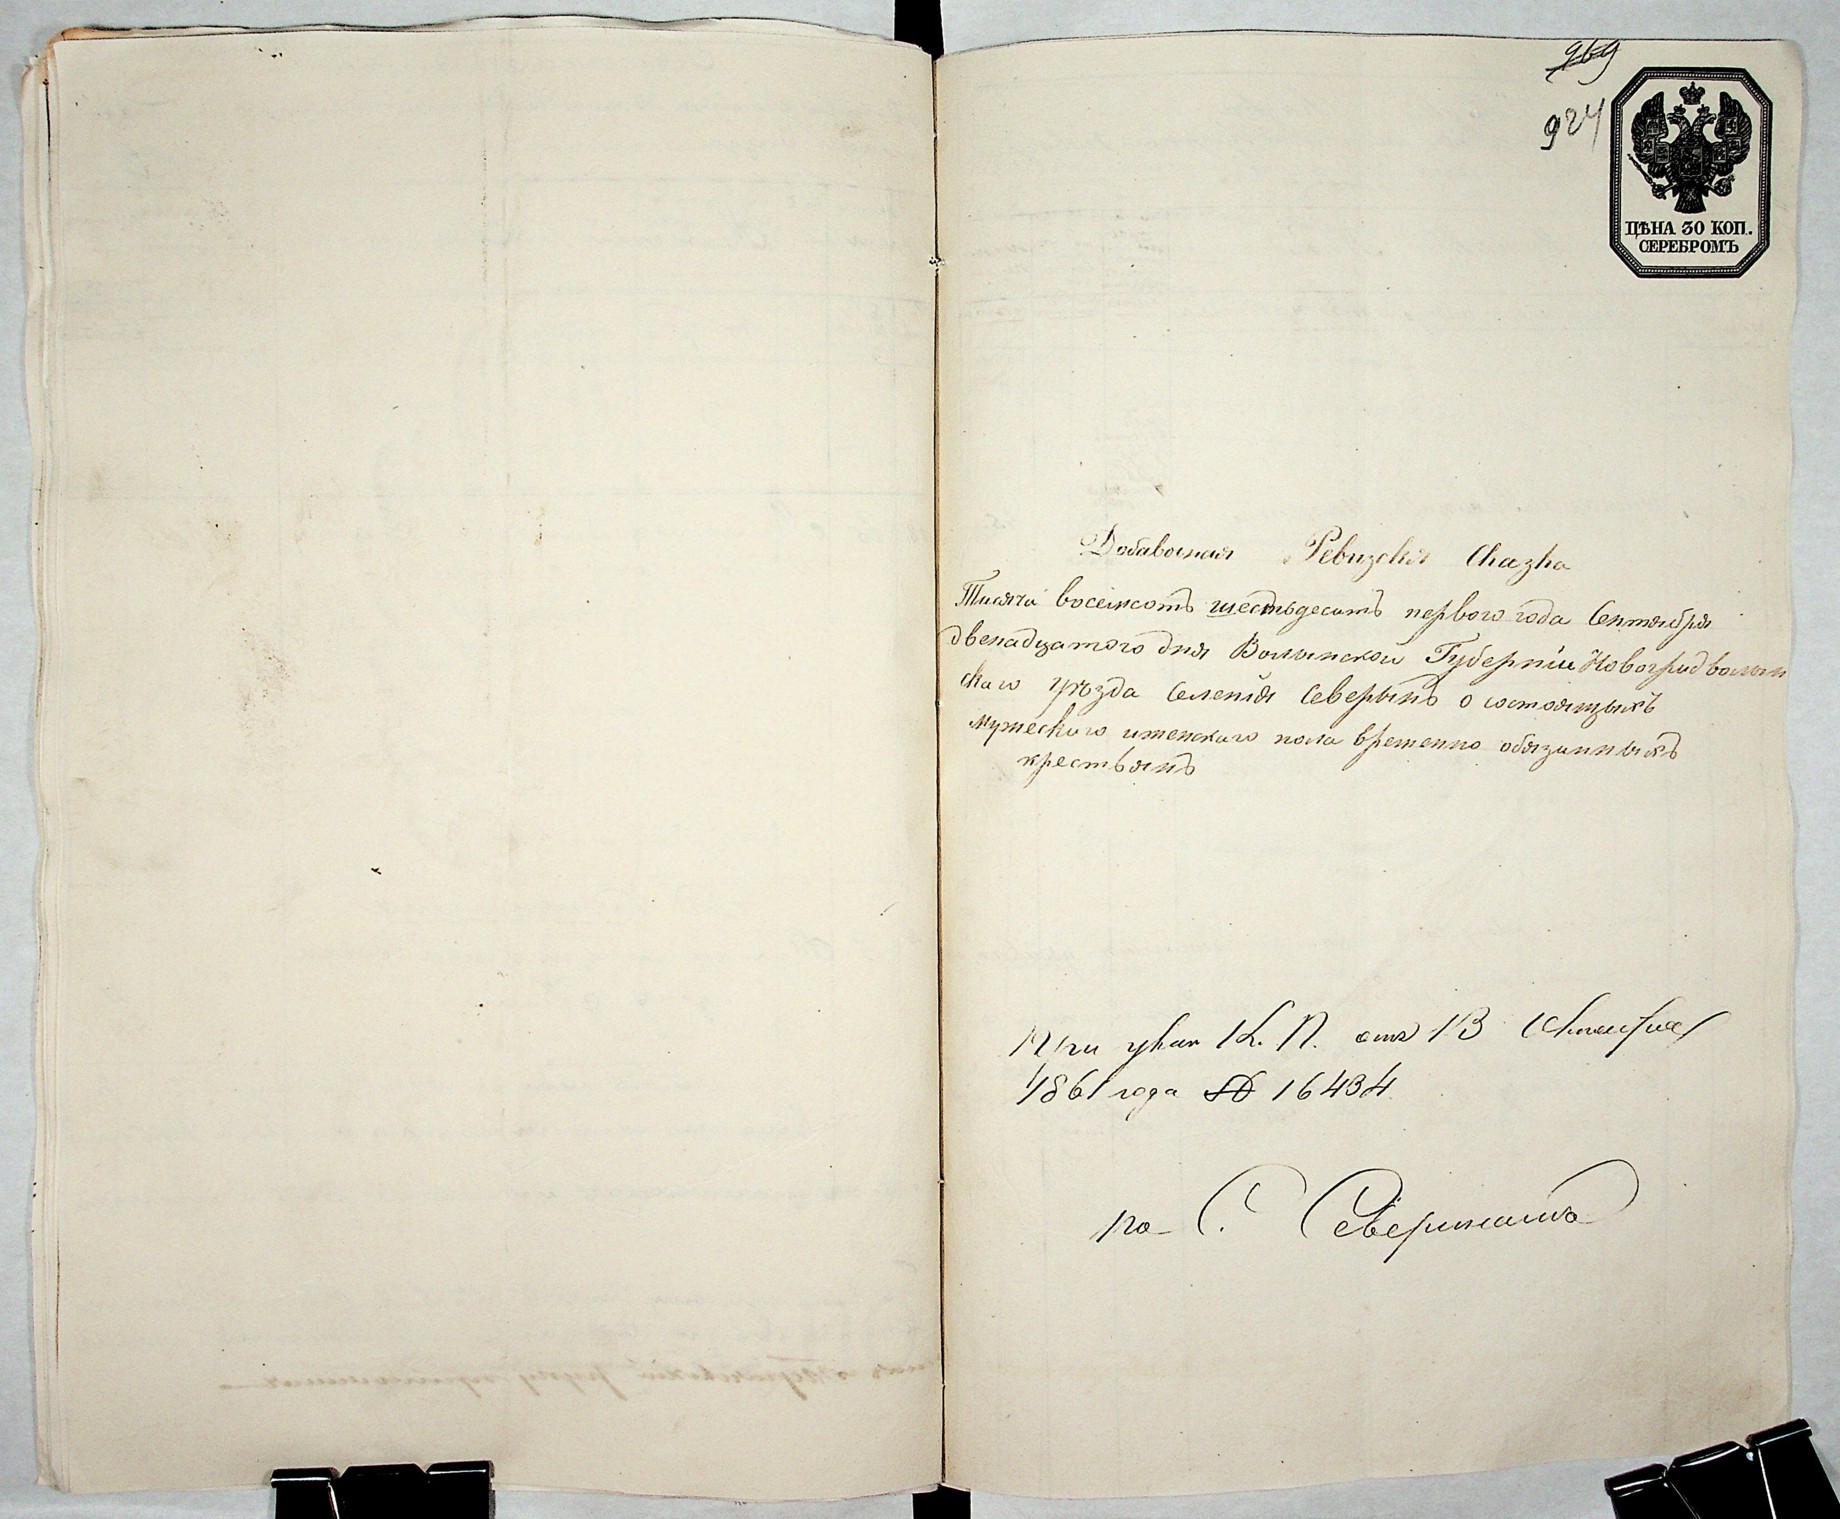 969
924
ЦѢНА 30 КОП.
СЕРЕБРОМЪ
Добавочная Ревизская Сказка
Тисяча восемсотъ шестьдесятъ первого года Сентября
двенадцатого дня Волынской Губерніи Новоградволын
скаго уѣзда Селенія Северынъ о состоящыхъ
мужескаго иженскаго пола временно обязанныхъ
крестьянъ
При указ К. П. отъ 13 Сентября
1861 года № 16434
по С. Северинамъ